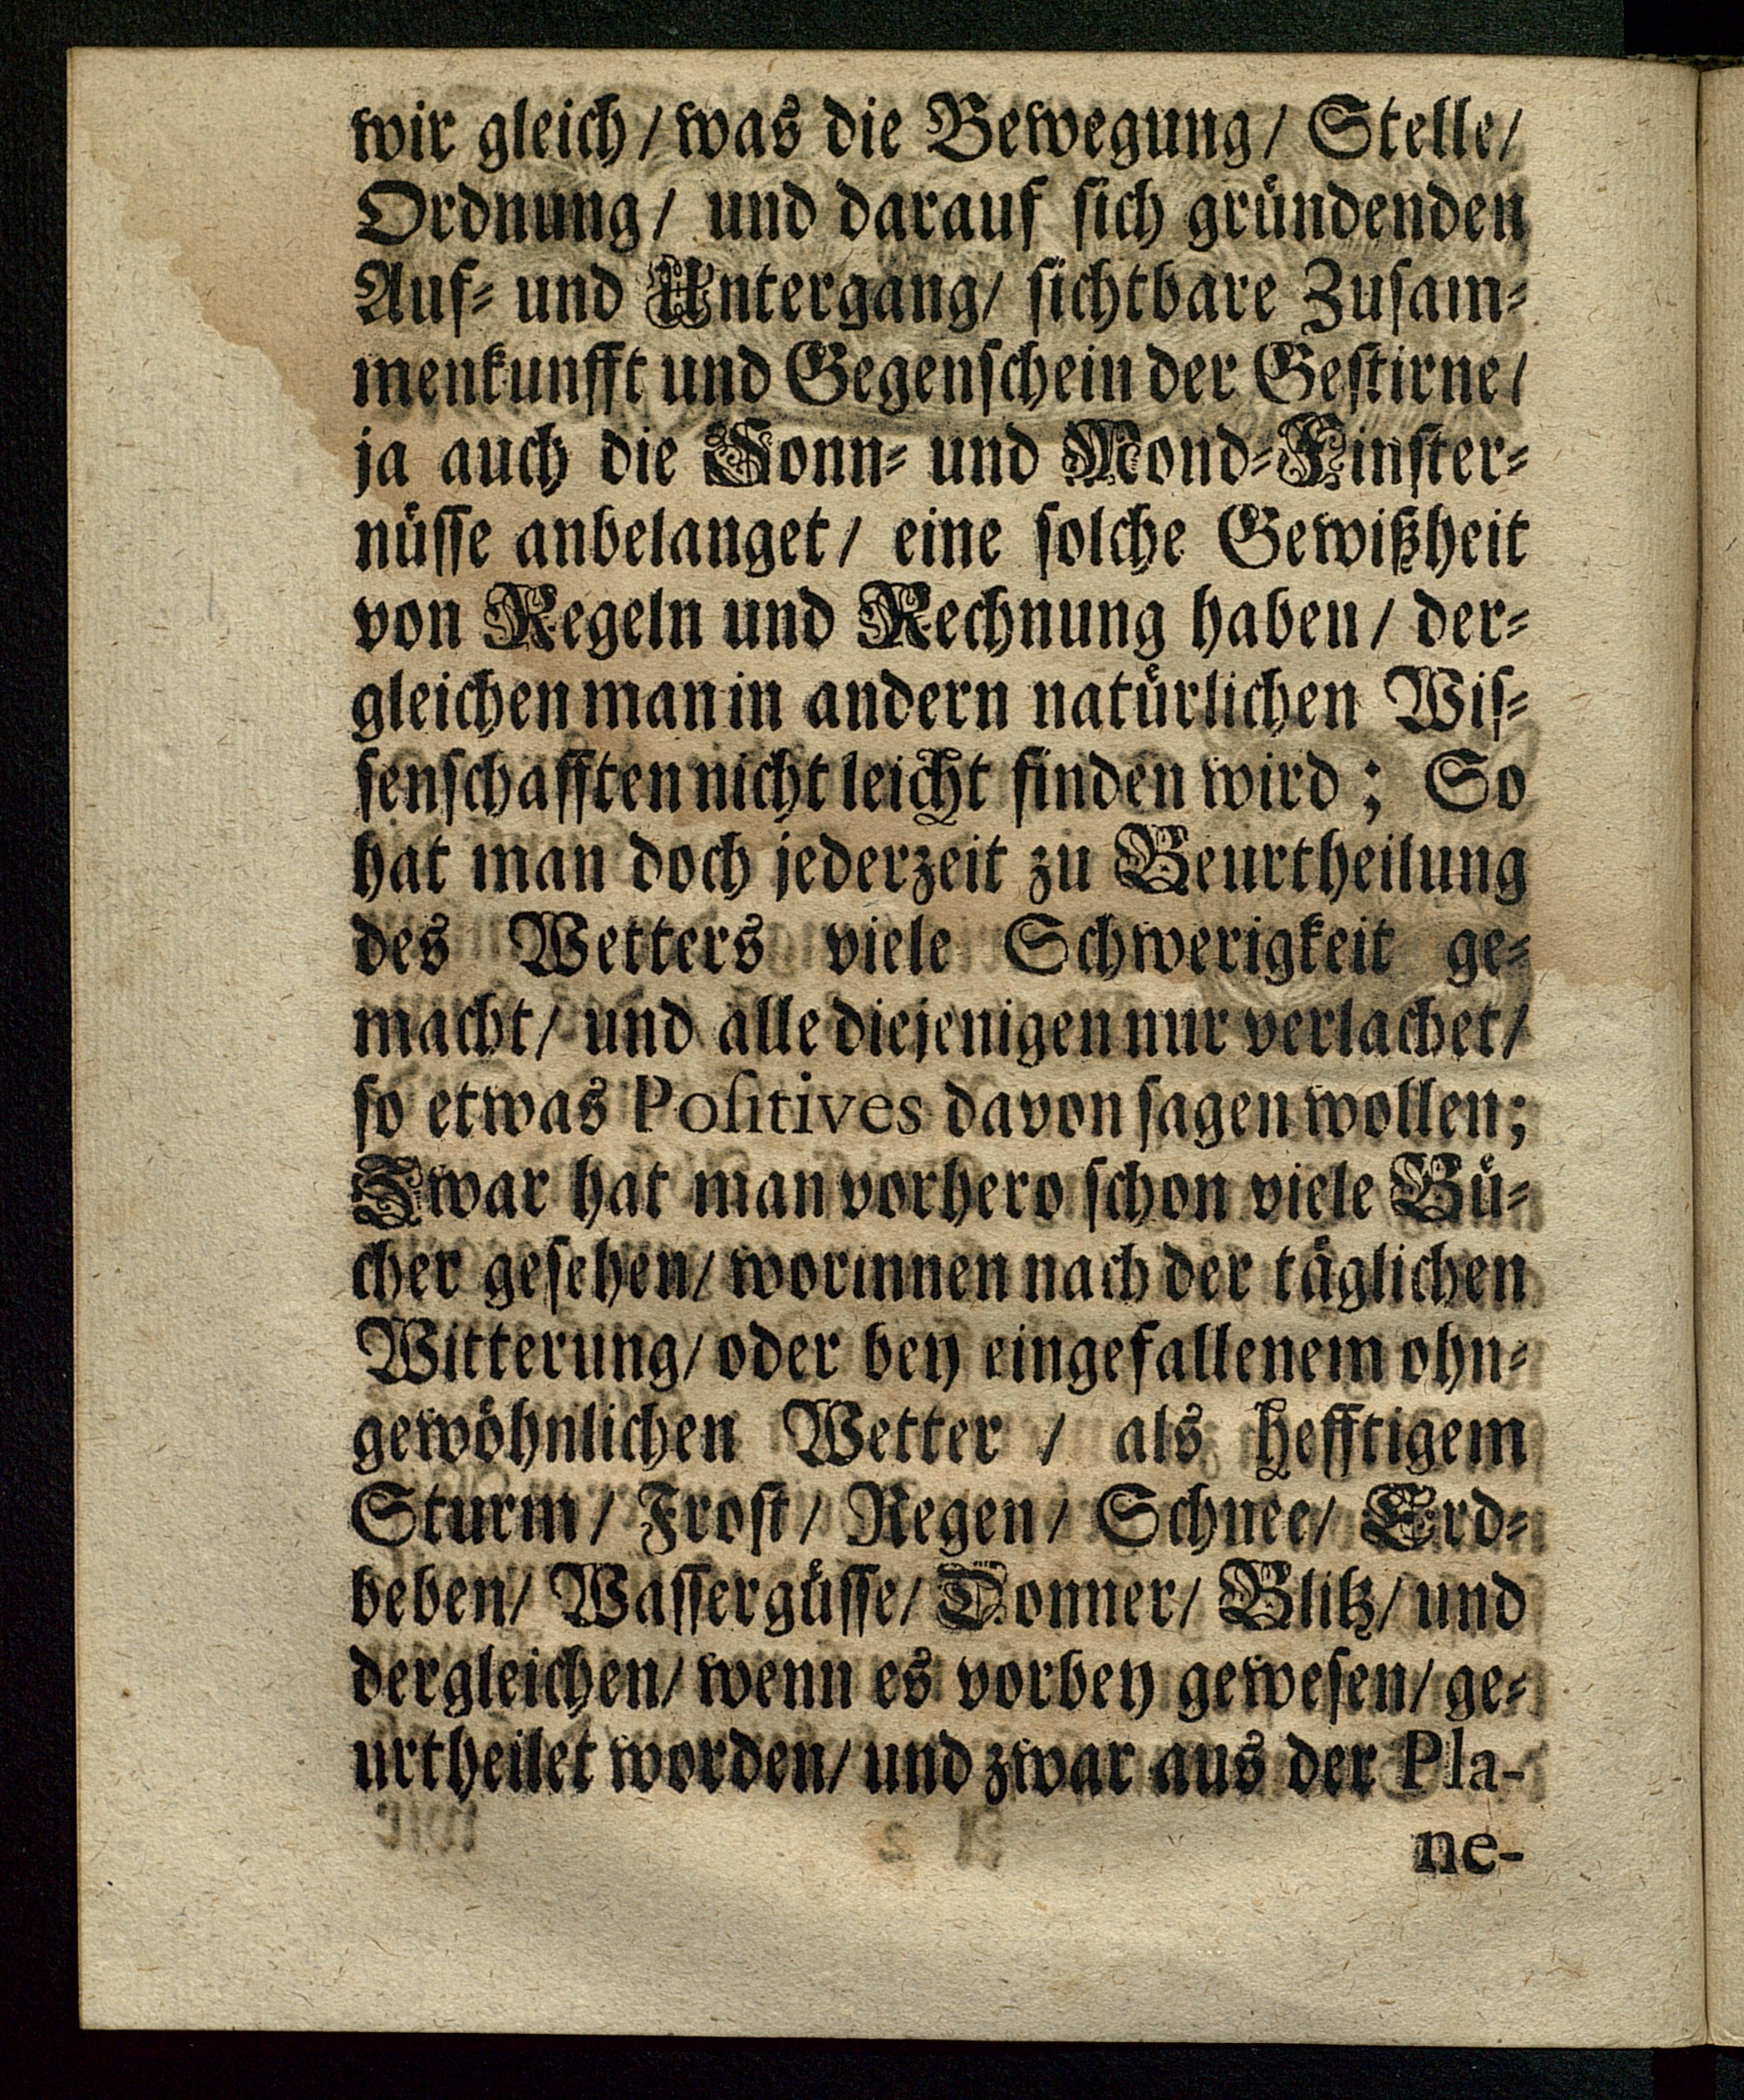 wir gleich / was die Bewegung / Stelle /
Ordnung / und darauf sich gründenden
Auf- und Untergang / sichtbare Zusam-
menkunfft und Gegenschein der Gestirne /
ja auch die Sonn- und Mond-Finster-
nüsse anbelanget / eine solche Gewißheit
von Regeln und Rechnung haben / der-
gleichen man in andern natürlichen Wis-
senschafften nicht leicht finden wird; So
hat man doch jederzeit zu Beurtheilung
des Wetters viele Schwerigkeit ge-
macht / und alle diejenigen nur verlachet /
so etwas Positives davon sagen wollen;
Zwar hat man vorhero schon viele Bü-
cher gesehen / worinnen nach der täglichen
Witterung / oder bey eingefallenem ohn-
gewöhnlichen Wetter / als hefftigem
Sturm / Frost / Regen / Schnee / Erd-
beben / Wassergüsse / Donner / Blitz / und
dergleichen / wenn es vorbey gewesen / ge-
urtheilet worden / und zwar aus der Pla-
ne-